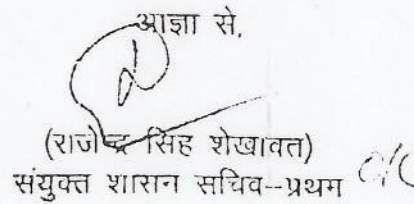 आज्ञा से,
(राजेन्द्र सिंह शेखावत)
संयुक्त शासन सचिव--प्रथम